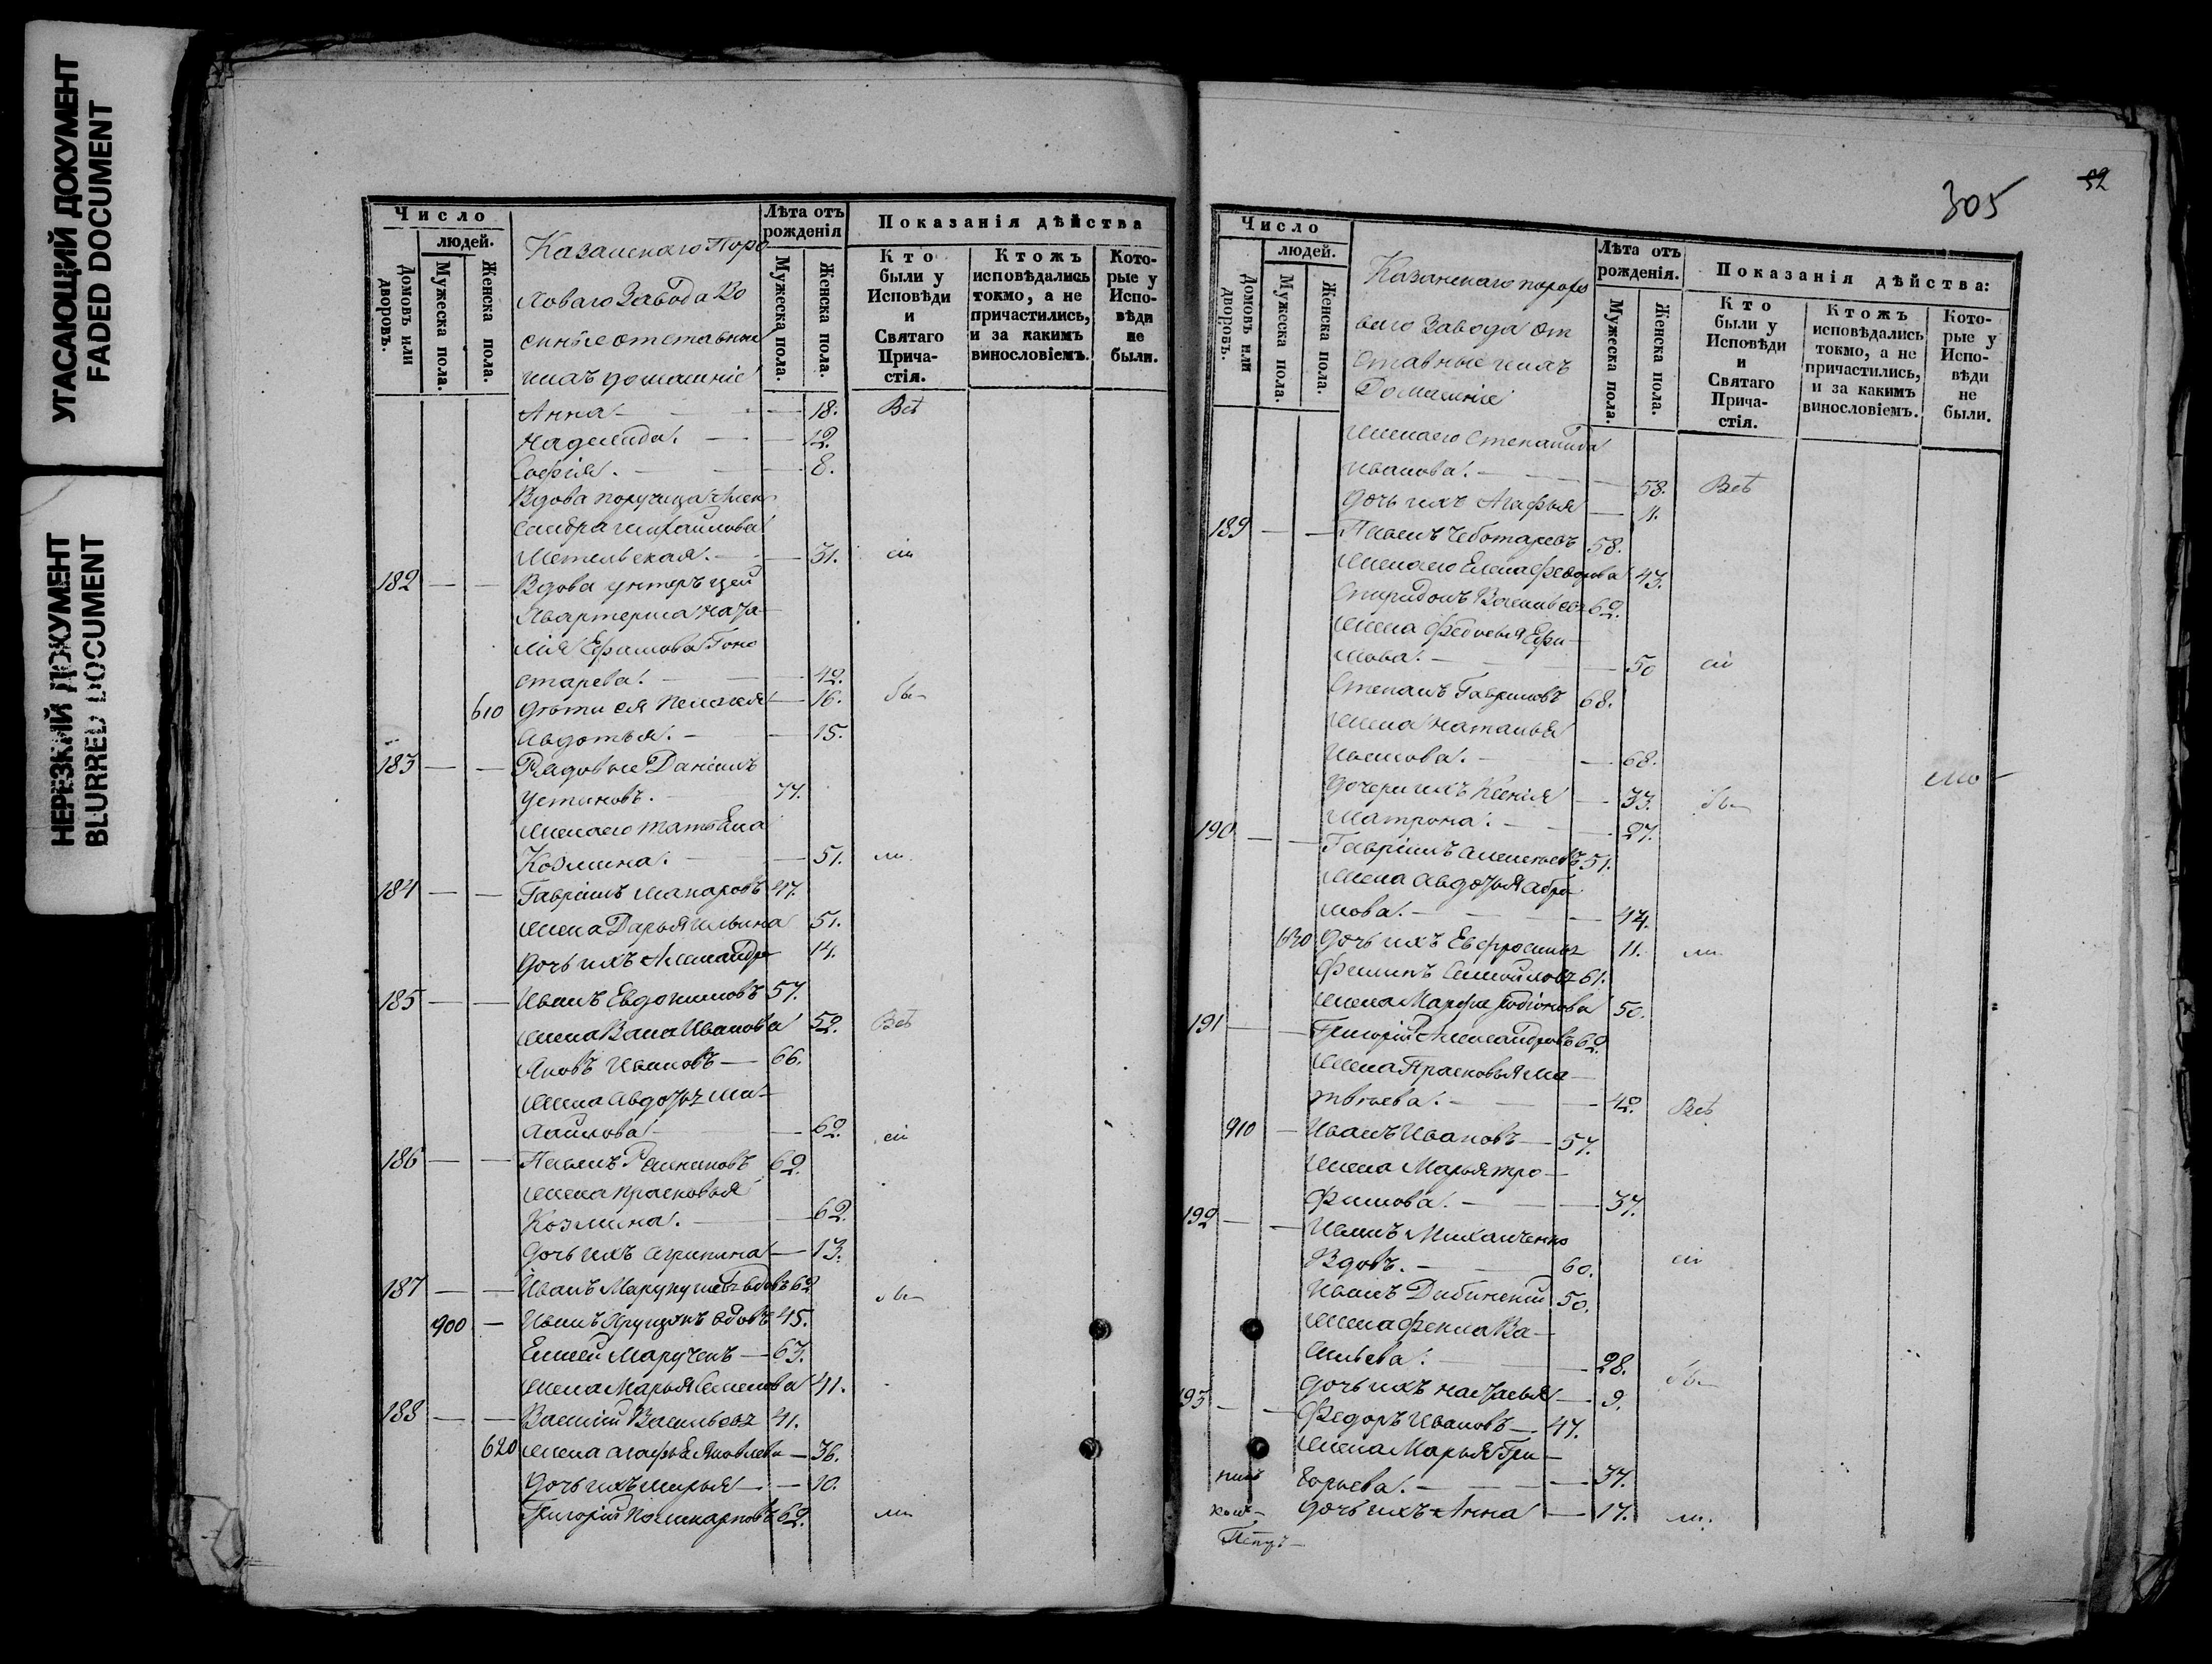 УГАСАЮЩИЙ ДОКУМЕНТ
FADED DOCUMENT
НЕРЕЗКИЙ ДОКУМЕНТ
BLURRED DOCUMENT
Число
людей.
Домовъ или дворовъ.
Мужеска пола.
Женска пола.
Казанскаго Поро
ховаго Завода Во
енные отставные
ихъ домашніе
Лѣта отъ рожденія
Мужеска пола.
Женска пола.
Показанія дѣйства
Кто были у Исповѣди и Святаго Прича-стія.
Ктожъ исповѣдались токмо, а не причастились, и за какимъ винословіемъ.
Кото-рые у Испо-вѣди не были.
Анна — 18. Всѣ
Надежда. — 12.
Софія. — 8.
Вдова поручица Алек
сандра Михайлова
— 31. сіи
182 — — Вдова унтеръ цей
хвартерша Ната
лія Ефимова Гоно
старева. — 42.
610 дѣти ея Пелагея — 16. бы
Авдотья. — 15.
183 — — Рядовые Даніилъ
Устиновъ. — 77.
жена его Татьяна
Козмина. — 51. ли
184 — — Гавріилъ Макаровъ 47.
жена Дарья Ильина 51.
дочь ихъ Александра 14.
185 — — Иванъ Евдокимовъ 57.
жена Ивановa 52. Всѣ
Яковъ Ивановъ — 66.
жена Авдотья Ми
хайлова — 62. сіи
186 — — Павелъ 62.
жена Прасковья
Козмина. — 62.
дочь ихъ Агрипина — 13.
187 — — Иванъ вдовъ 62 бы
900 — Иванъ вдовъ 45.
Елисей Марученъ — 63.
жена Марья Семенова 41.
188 — — Василій Васильевъ 41.
620 жена Агафья Яковлева — 36.
дочь ихъ Марья — 10.
Григорій Поликарповъ 62. ли
305
52
Число
людей.
Домовъ или дворовъ.
Мужеска пола.
Женска пола.
Казанскаго порохо
ваго Завода От
ставные ихъ
Домашніе
Лѣта отъ рожденія.
Мужеска пола.
Женска пола.
Показанія дѣйства:
Кто были у Исповѣди и Святаго Прича-стія.
Ктожъ исповѣдались токмо, а не причастились, и за какимъ винословіемъ.
Кото-рые у Испо-вѣди не были.
жена его Степанида
Иванова. — 58. Всѣ
дочь ихъ Агафья — 11.
189 — — Павелъ Чеботаревъ 58.
жена его Елена Федорова 43.
Спиридонъ Васильевъ 62.
жена Федосья Ефи
мова. — 50 сіи
Степанъ Гавриловъ 68.
жена Наталья
Иванова. — 68.
дочери ихъ Ксенія — 33. бы
Матрона. — 27.
190 — — Гавріилъ Алексѣевъ 51.
жена Авдотья Абра
мова. — 44.
630 дочь ихъ Евфросинья 11. ли
Филипъ Самойловъ 61.
жена Марфа Родіонова 50.
191 — — Григорій Александровъ 62.
жена Прасковья Ма
твѣева. — 42. Всѣ
910 — Иванъ Ивановъ — 57.
жена Марья Тро
фимова. — 37.
192 — — Иванъ Михалченко
Вдовъ. — 60. сіи
Иванъ Дибинскій 50.
жена Фекла Ва
сильева. — 28. бы
дочь ихъ Настасья — 9.
193 — — Федоръ Ивановъ — 47.
жена Марья Гри
горьева. — 37.
дочь ихъ Анна — 17. ли.